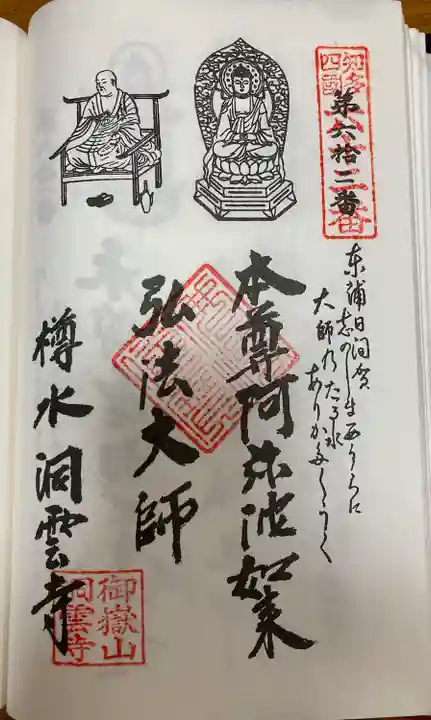 知多
四國
第六拾二番
東浦日间賀
志のしま西うらに
大師乃たる水
ありか
本尊阿弥陀如来
弘法大師
樽水洞雲寺
御嶽山
洞雲寺